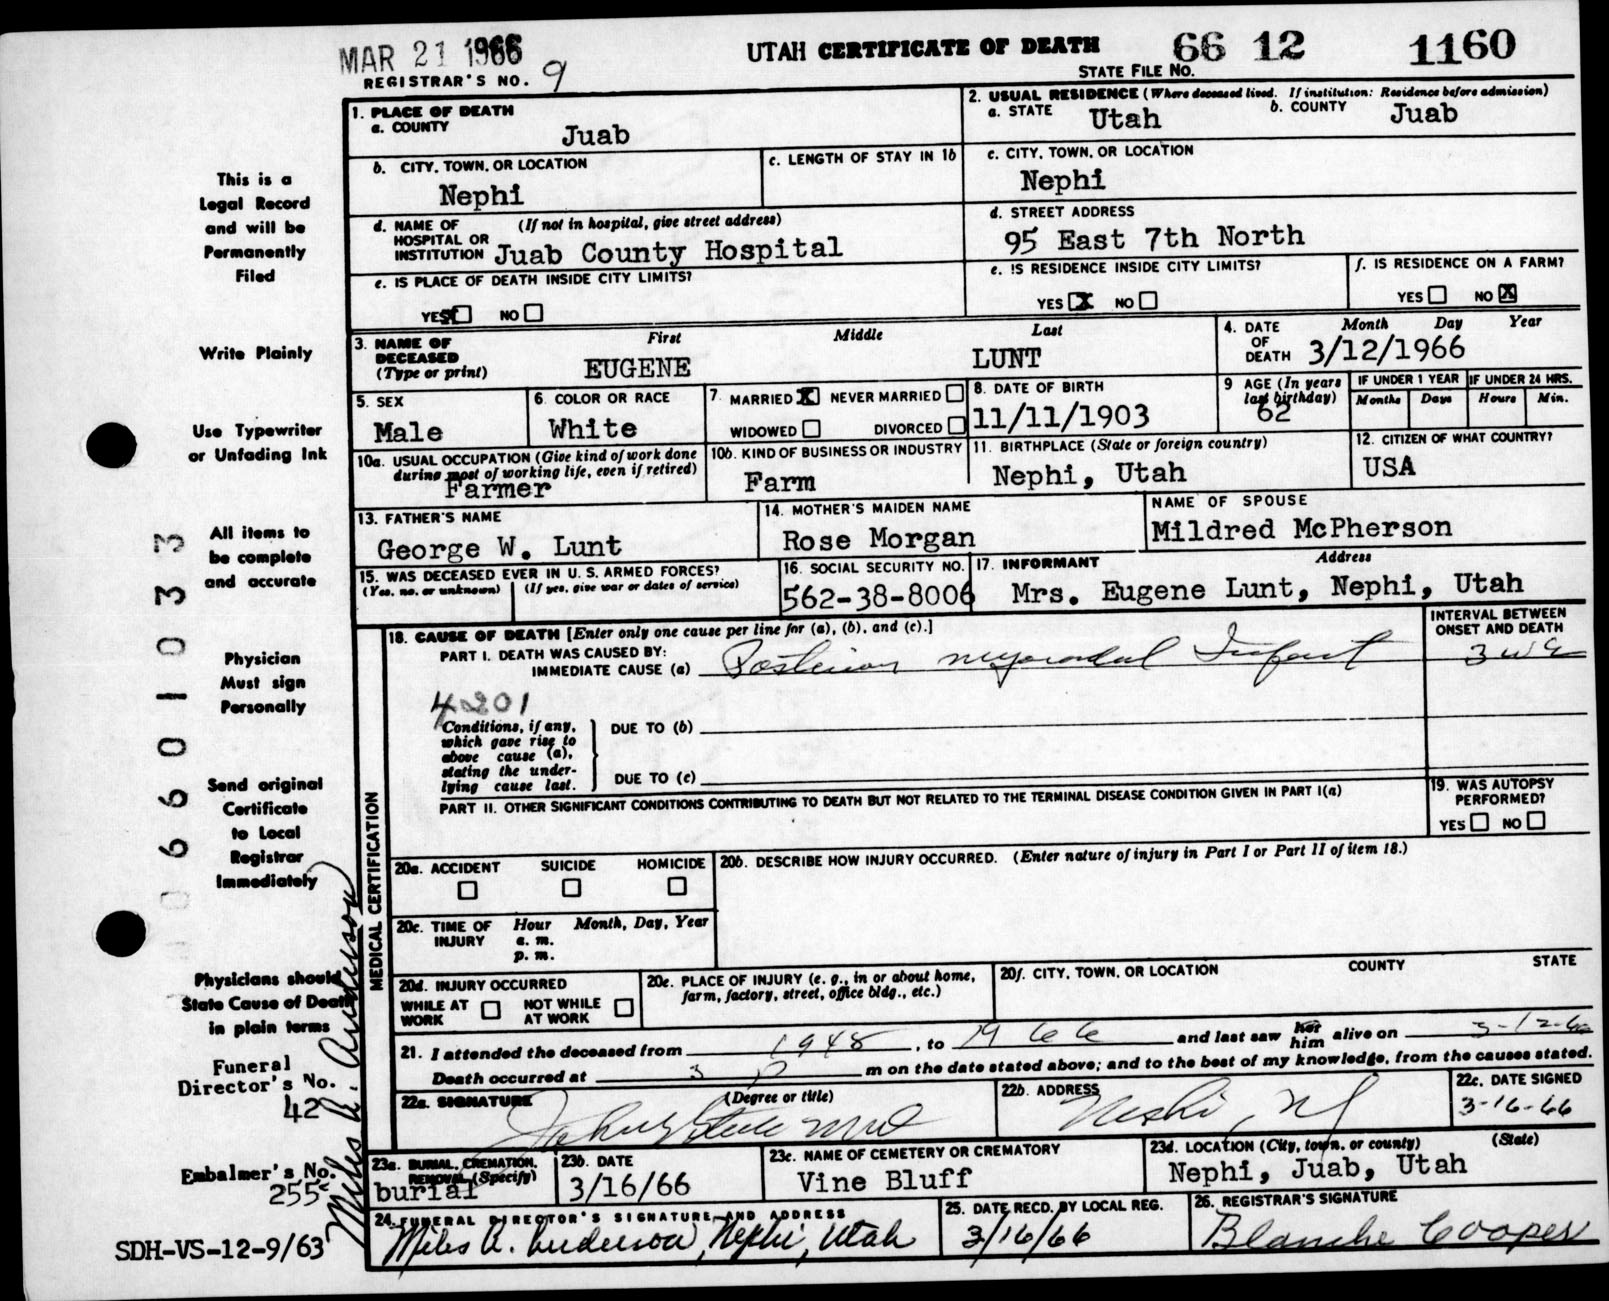 MAR 21 1966
UTAH CERTIFICATE OF DEATH 66 12 1160
REGISTRAR'S NO. 9
STATE FILE NO.
This is a
Legal Record
and will be
Permanently
Filed
Write Plainly
Use Typewriter
or Unfading Ink
All items to
be complete
and accurate
Physician
Must sign
Personally
Send original
Certificate
to Local
Registrar
Immediately
Physicians should
State Cause of Death
in plain terms
Funeral
Director's No.
42
Embalmer's No.
255
SDH-VS-12-9/63
06601033
Miles R. Anderson
1. PLACE OF DEATH
a. COUNTY
Juab
2. USUAL RESIDENCE (Where deceased lived. If institution: Residence before admission)
a. STATE Utah b. COUNTY Juab
b. CITY, TOWN, OR LOCATION
Nephi
c. LENGTH OF STAY IN 1b
c. CITY, TOWN, OR LOCATION
Nephi
d. NAME OF HOSPITAL OR INSTITUTION (If not in hospital, give street address)
Juab County Hospital
d. STREET ADDRESS
95 East 7th North
e. IS PLACE OF DEATH INSIDE CITY LIMITS?
YES X NO
e. IS RESIDENCE INSIDE CITY LIMITS?
YES X NO
f. IS RESIDENCE ON A FARM?
YES NO X
3. NAME OF DECEASED (Type or print)
First Middle Last
EUGENE LUNT
4. DATE OF DEATH Month Day Year
3/12/1966
5. SEX
Male
6. COLOR OR RACE
White
7. MARRIED X NEVER MARRIED
WIDOWED DIVORCED
8. DATE OF BIRTH
11/11/1903
9 AGE (In years last birthday)
62
IF UNDER 1 YEAR
Months Days
IF UNDER 24 HRS.
Hours Min.
10a. USUAL OCCUPATION (Give kind of work done during most of working life, even if retired)
Farmer
10b. KIND OF BUSINESS OR INDUSTRY
Farm
11. BIRTHPLACE (State or foreign country)
Nephi, Utah
12. CITIZEN OF WHAT COUNTRY?
USA
13. FATHER'S NAME
George W. Lunt
14. MOTHER'S MAIDEN NAME
Rose Morgan
NAME OF SPOUSE
Mildred McPherson
15. WAS DECEASED EVER IN U.S. ARMED FORCES?
(Yes, no, or unknown) (If yes, give war or dates of service)
16. SOCIAL SECURITY NO.
562-38-8006
17. INFORMANT Address
Mrs. Eugene Lunt, Nephi, Utah
MEDICAL CERTIFICATION
18. CAUSE OF DEATH [Enter only one cause per line for (a), (b), and (c).]
INTERVAL BETWEEN ONSET AND DEATH
PART I. DEATH WAS CAUSED BY:
IMMEDIATE CAUSE (a) Posterior myocardial Infarct
4201
Conditions, if any, which gave rise to above cause (a), stating the underlying cause last.
DUE TO (b)
DUE TO (c)
PART II. OTHER SIGNIFICANT CONDITIONS CONTRIBUTING TO DEATH BUT NOT RELATED TO THE TERMINAL DISEASE CONDITION GIVEN IN PART I(a)
19. WAS AUTOPSY PERFORMED?
YES NO
20a. ACCIDENT SUICIDE HOMICIDE
20b. DESCRIBE HOW INJURY OCCURRED. (Enter nature of injury in Part I or Part II of item 18.)
20c. TIME OF INJURY Hour Month, Day, Year
a. m.
p. m.
20d. INJURY OCCURRED
WHILE AT WORK NOT WHILE AT WORK
20e. PLACE OF INJURY (e. g., in or about home, farm, factory, street, office bldg., etc.)
20f. CITY, TOWN, OR LOCATION COUNTY STATE
21. I attended the deceased from 1948, to 1966 and last saw her him alive on 3-12-66
Death occurred at 3 P m on the date stated above; and to the best of my knowledge, from the causes stated.
22a. SIGNATURE (Degree or title)
22b. ADDRESS
Nephi, Ut
22c. DATE SIGNED
3-16-66
23a. BURIAL, CREMATION, REMOVAL (Specify)
burial
23b. DATE
3/16/66
23c. NAME OF CEMETERY OR CREMATORY
Vine Bluff
23d. LOCATION (City, town, or county) (State)
Nephi, Juab, Utah
24. FUNERAL DIRECTOR'S SIGNATURE AND ADDRESS
Miles R. Anderson, Nephi, Utah
25. DATE RECD. BY LOCAL REG.
3/16/66
26. REGISTRAR'S SIGNATURE
Blanche Cooper